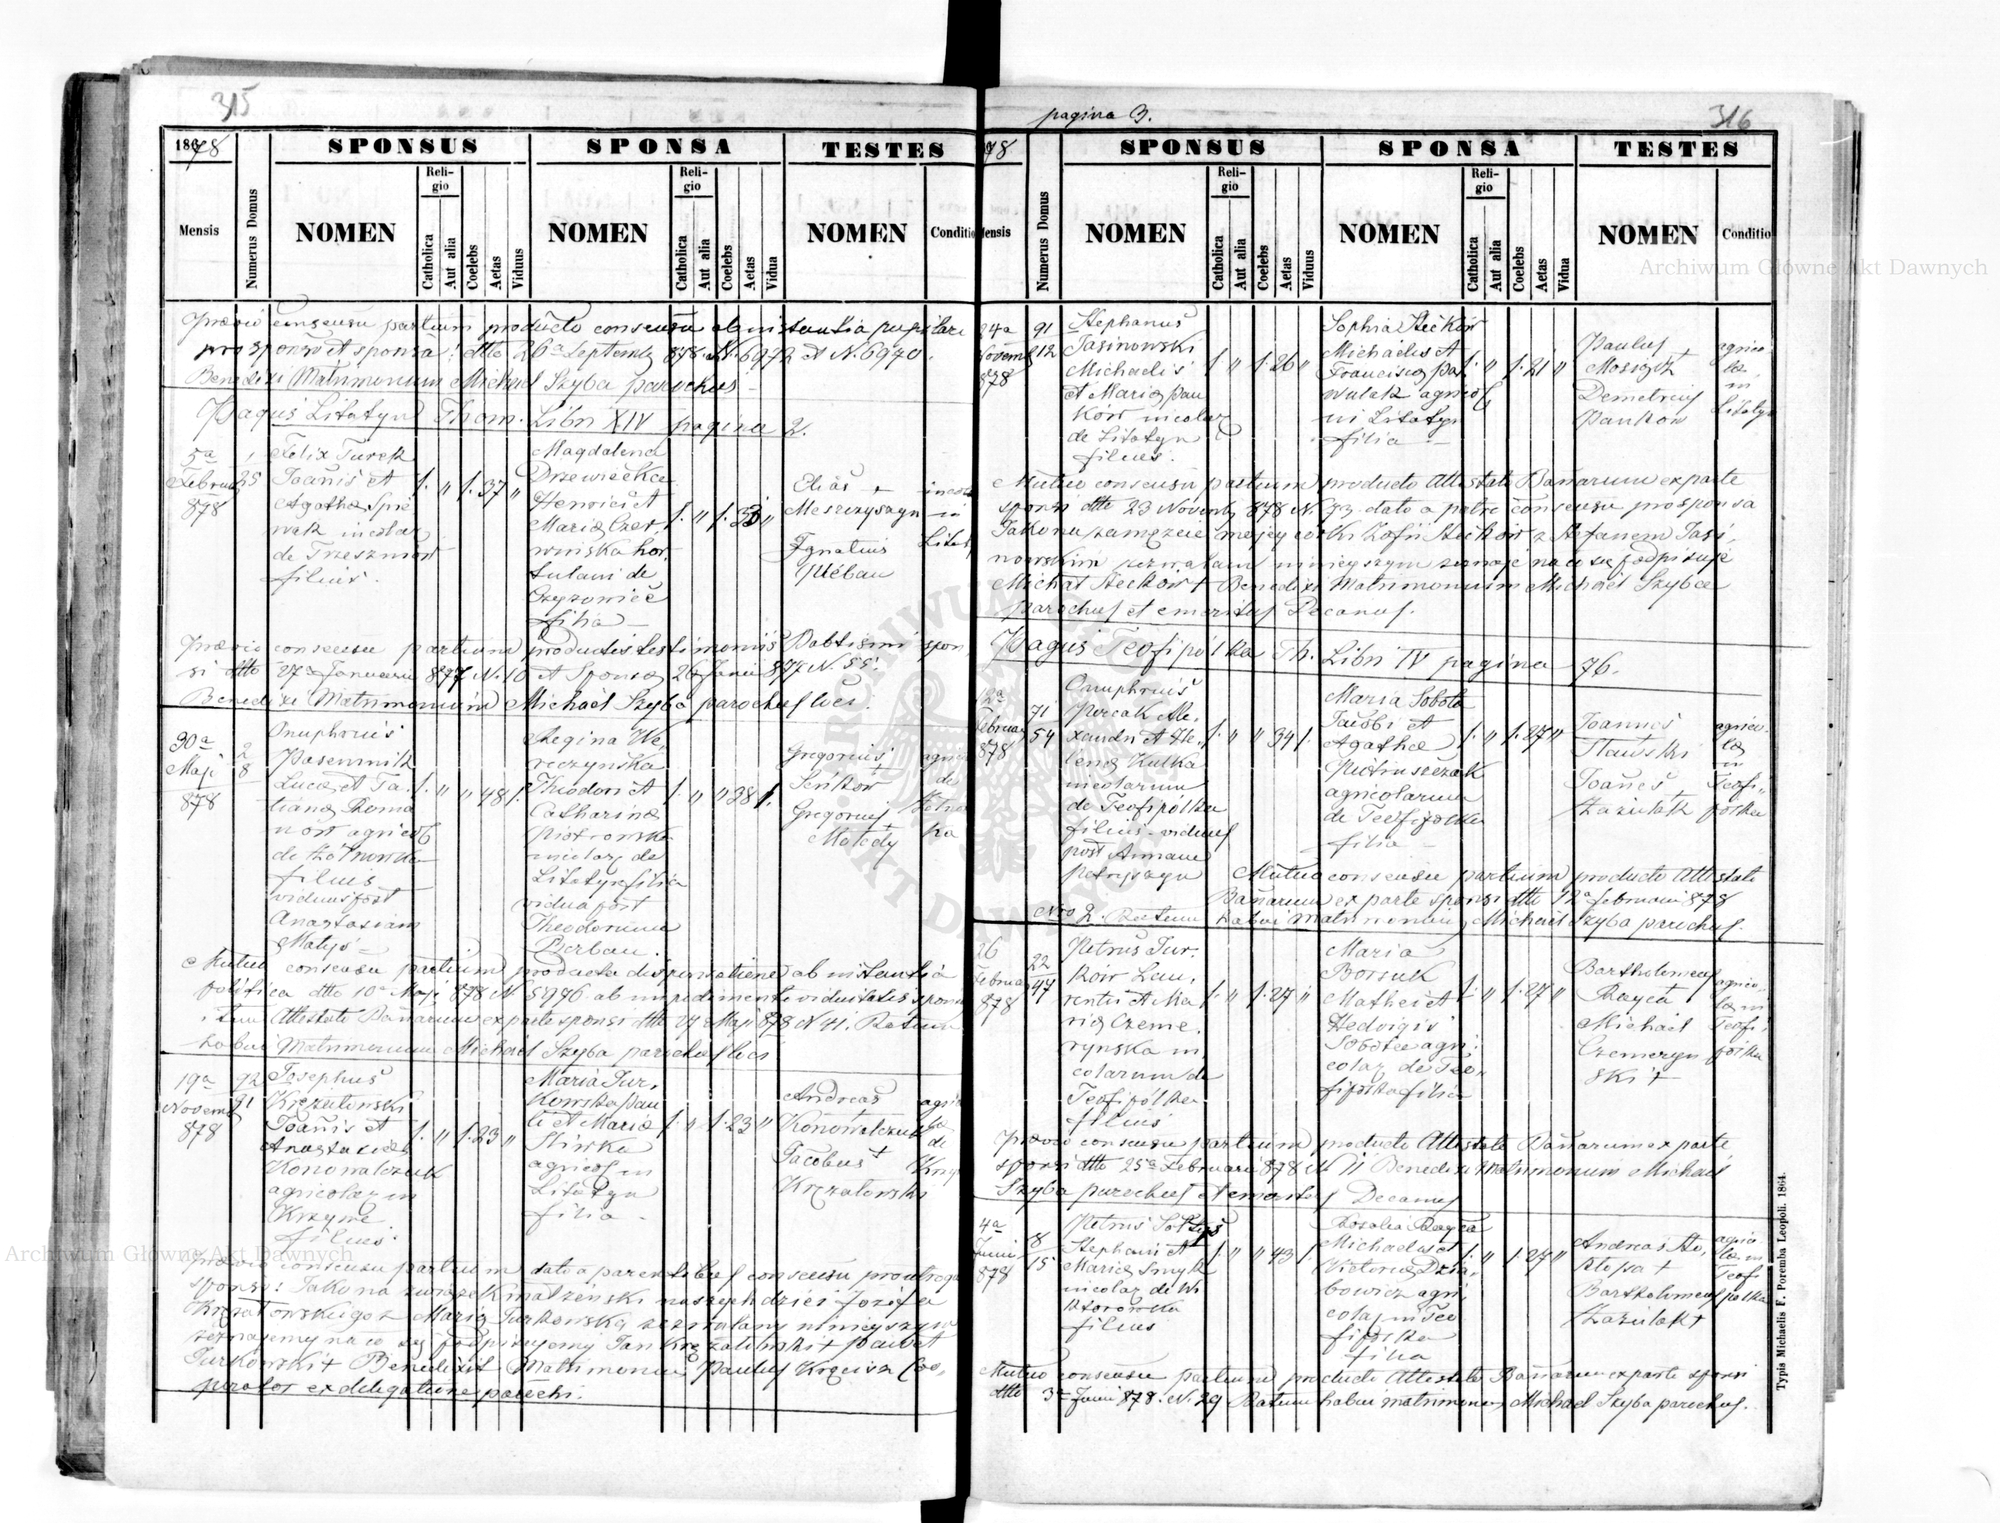 315
1878
SPONSUS
SPONSA
TESTES
Mensis
Numerus Domus
NOMEN
Religio
Catholica
Aut alia
Coelebs
Aetas
Viduus
NOMEN
Religio
Catholica
Aut alia
Coelebs
Aetas
Vidua
NOMEN
Conditio
Prævio consensu partium producto consensu ab instantia pupilari
pro sponso et sponsa: dtto 26a Septemb 878. N. 6972 et N. 6970.
Benedixi Matrimonium Michael Szyba parochus
Pagus Litatyn Thom. Libri XIV pagina 2.
5a
Februar
878
25
Felix Turek
Joanis et
Agatha Spie
wak incolar
de Trzeszniow
filius.
1. " 1. 37 "
Magdalena
Drzewiecka
Henrici et
Maria Czer,
wińska hor
tulani de
filia
1. " 1. 33 "
Elias +
Meszczyszyn
Ignatius
Pleban
incolæ
in
Litat
Prævio consensu partium productis testimoniis Babtismi spon,
si dtto 27a Januarii 877 N. 10 et Sponsa 26 Junii 877 N. 55.
Benedixi Matrimonium Michael Szyba parochus loci.
30a
Maji
878
2
8
Onuphrius
Pasemnik
Luca et Ta,
tiana Roma
now agricol
filius
viduus post
Anastasiam
Matyś
1. " " 48 1.
Regina We,
reczynska
Theodori et
Catharina
Piotrowska
incolar de
Litatyn filia
vidua post
Theodorum
Berbau.
1. " " 28 1.
Gregorius
Seńkow
Gregorius
Mołody
agric
de
Mutuo consensu partium producta dispensatione ab instantia
politica dtto 10a Maji 878 N. 5976. ab impedimento viduitatis sponsæ
item Attestato Banarum ex parte sponsi dtto 27 Maji 878 N 41. Ratum
habui Matrimonium Michael Szyba parochus loci
19a
Novemb
878
92
91
Josephus
Krzzatowski
Joanis et
Anastasia
Konowalczuk
agricolar in
Krzywe
filius.
1. " 1. 23 "
Maria Tur,
kowska Pau
li et Maria
Sliwka
agricol in
Litatyn
filia
1. " 1. 23 "
Andreas
Konowalczuk
Jacobus +
Krzzatowski
agric
la
de
Krzy
Prævio consensu partium dato a parentibus consensu pro utroque
sponso: Jako na związek małżeński naszych dzieci Józefa
z Marią Turkowską zezwalamy niniejszym
zeznajemy na co się podpisujemy Jan + Paweł
Turkowski + Benedixit Matrimonium Paulus Coo,
perator ex delegatione parochi.
pagina 3.
316
78
SPONSUS
SPONSA
TESTES
Mensis
Numerus Domus
NOMEN
Religio
Catholica
Aut alia
Coelebs
Aetas
Viduus
NOMEN
Religio
Catholica
Aut alia
Coelebs
Aetas
Vidua
NOMEN
Conditio
24a
Novemb
878
91
12
Stephanus
Jasinowski
Michaelis
et Maria Pan
ków incolar
de Litatyn
filius.
1. " 1. 26 "
Sophia Stećków
Michaelis et
Francisca Pa
wulak agricol
in Litatyn
filia
1. " 1. 21 "
Paulus
Demetrius
Pankow
agrico
læ
in
Litatyn
Mutuo consensu partium producto Attestato Banarum ex parte
sponsi dtto 23 Novemb 878 N. 73. dato a patre consensu pro sponsa
Jako na zamęzcie mojej córki Zofii Stećków z Stefanem Jasi,
nowskim zezwalam niniejszym zeznaję na co się podpisuję
Michał Stećków + Benedixi Matrimonium Michael Szyba
parochus et emeritus Decanus.
Pagus Teofipólka Th. Libri IV pagina 76.
12a
Februar
878
71
54
Onuphrius
Percak Ale,
xandri et He,
lena Kulka
incolarum
de Teofipólka
filius viduus
post Annam
Petryszyn
1. " " 34 1.
Maria Sobota
Jacobi et
Agatha
Pietruszczak
agricolarum
de Teofipólka
filia
1. " 1. 27 "
Joannes
Stawski
Joanes
Łaziuk +
agrico
læ
in
Teofi,
pólka
Mutuo consensu partium producto Attestato
Banarum ex parte sponsi dtto 12a februarii 878
Nro 2. Ratum habui Matrimonium Michael Szyba parochus.
26
Februar
878
22
47
Petrus Tur.
ków Lau,
rentii et Ma
ria Czeme,
rynska in,
colarum de
Teofipólka
filius
1. " 1. 27 "
Maria
Borsuk
Mathei et
Hedvigis
Sobota agri
colar de Teo,
fipolka filia
1. " 1. 27 "
Bartholomeus
Rayca
Michael
Czemeryn
ski +
agrico,
læ in
Teofi
polka
Prævio consensu partium producto Attestato Banarum ex parte
sponsi dtto 25a Februarii 878 N 11 Benedixi Matrimonium Michael
Szyba parochus et emeritus Decanus
4a
Junii
878
8
15
Petrus Sołtys
Stephani et
Maria Smyk
incolar de Wi
ktorowka
filius
1. " " 43 1.
Rosalia Rayca
Michaelis et
Victoria Dzia,
bowicz agri,
colar in Teo
fipolka
filia
1. " 1. 27 "
Andreas
Bartholomeus
Łaziuk +
agrico
læ in
Teofi
polka
Mutuo consensu partium producto Attestato Banarum ex parte sponsi
dtto 3a Junii 878. N. 29 Ratum habui matrimonium Michael Szyba parochus.
Typis Michaelis F. Poremba Leopoli. 1864.
Archiwum Główne Akt Dawnych
Archiwum Główne Akt Dawnych